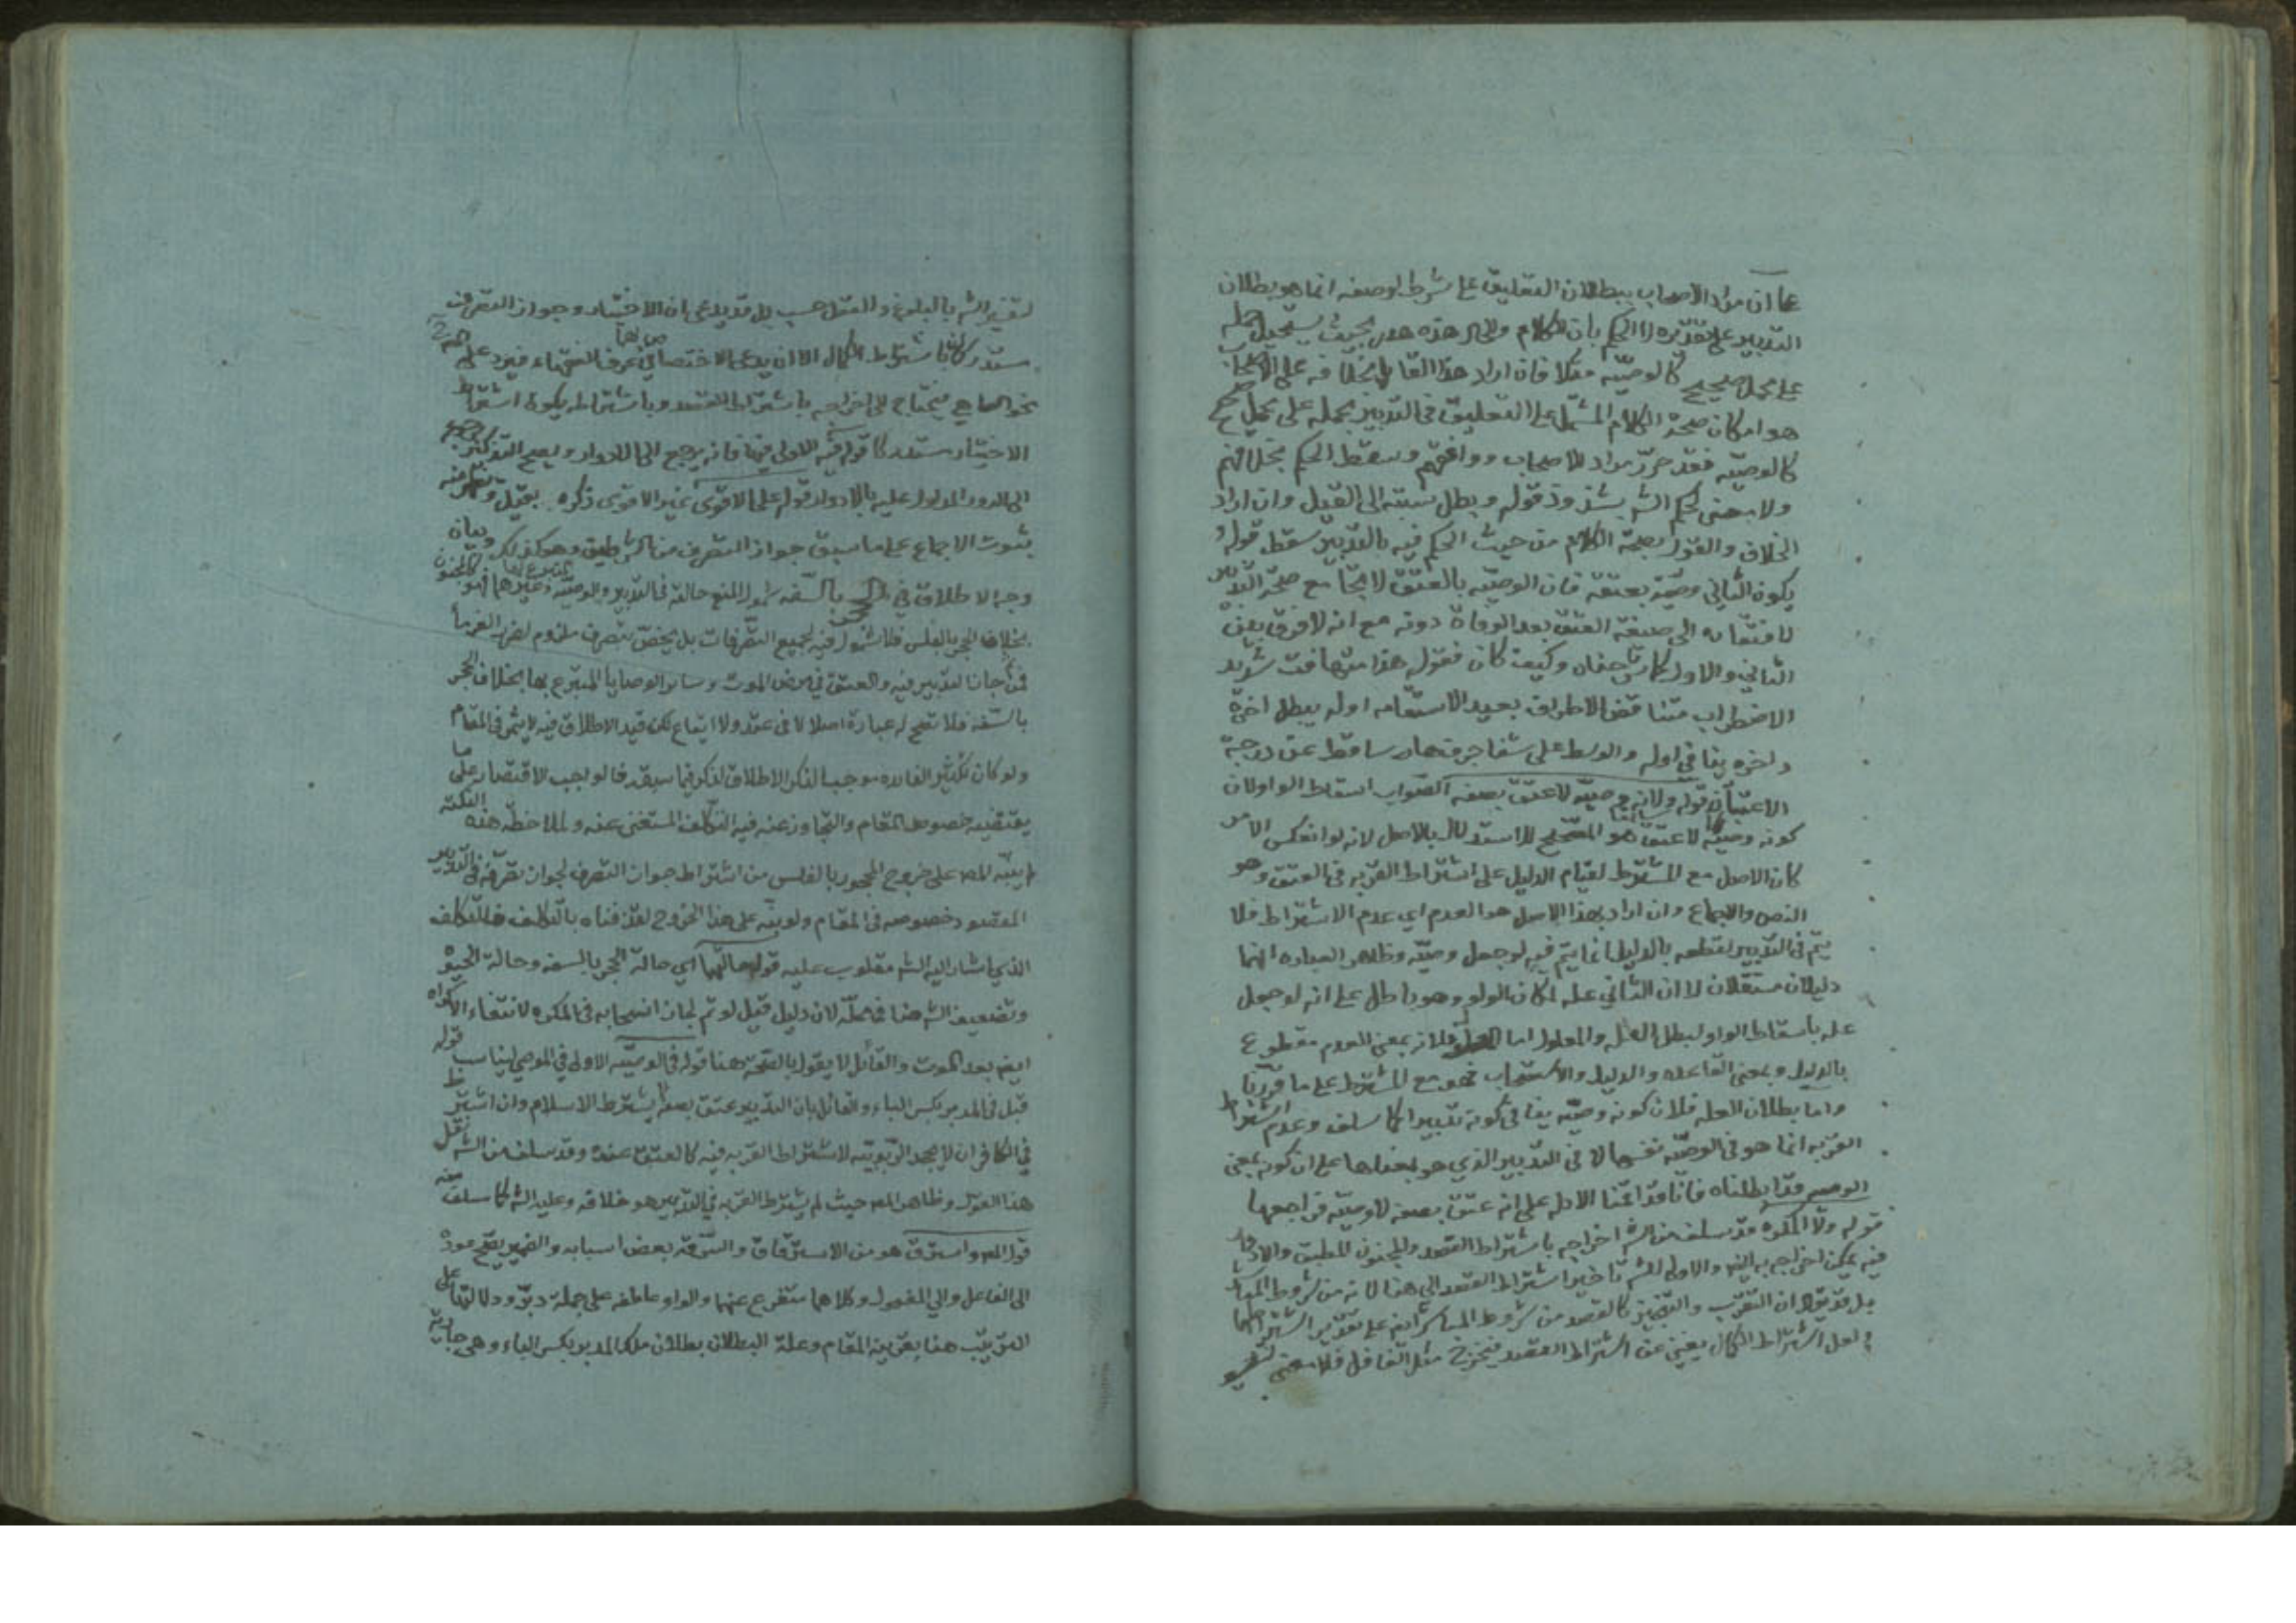 على ان مراد الاصحاب ببطلان التعليق على شرط او صفه انما هو بطلان
التدبير على تقديره لا الحكم بان الكلام هذه هدر بحيث يستحيل حمله
على محمل صحيح كالوصيه مثلا فان اراد هذا القايل بخلافه على الاصحاب
هو امكان صحة الكلام المشتمل على التعليق في التدبير بحمله على محمل صحيح
كالوصيه فقد حرر مراد الاصحاب ووافقهم وسقط الحكم بخلافهم
ولا معنى لحكم الشه بشذوذ قوله وبطل نسبته الى القيل وان اراد
الخلاف والقول بصحة الكلام من حيث الحكم فيه بالتدبير سقط قوله
يكون الثاني وصية بعتقه فان الوصيه بالعتق لا تجامع صحة التدبير
لافتقاره الى صيغة العتق بعد الوفاة دونه مع انه لا فرق بين
الثاني والاول كما وكيف كان فقوله هذا متهافت شديد
الاضطراب متناقض الاطراف بعيد الاستقامه اوله يبطل اخره
واخره ينافي اوله والوسط على شفا جرف هار ساقط عن درجة
الاعتبار قوله ولانه وصية لا عتق بصفه الصواب اسقاط الواو لان
كونه وصية لا عتقا هو المصحح للاستدلال بالاصل لانه لو انعكس الامر
كان الاصل مع المشترط لقيام الدليل على اشتراط القربه في العتق وهو
النص والاجماع وان اراد بهذا الاصل هو العدم اي عدم الاشتراط فلا
يتم في التدبير لقطعه بالدليل انما يتم فيه لو جعل وصيه وظاهر العباره انهما
دليلان مستقلان لا ان الثاني عله لمكان الواو وهو باطل على انه لو جعل
عله باسقاط الواو لبطل العله والمعلول اما فلانه بمعنى العدم مقطوع
بالدليل وبمعنى القاعده والدليل والاستصحاب فهو مع المشترط على ما قررنا
واما بطلان العله فلان كونه وصيه ينافي كونه تدبيرا كما سلف وعدم اشتراط
القربه انما هو في الوصيه نفسها لا في التدبير الذي هو بمعناها على ان كونه بمعنى
الوصيه قد ابطلناه فانا قد اقمنا الادله على انه عتق بصفه لا وصيه فراجعها
قوله ولا المكره قد سلف من الشه اخراجه باشتراط القصد والمجنون المطبق والادوار
فيه يمكن اخراجه به ايضا والاولى للشه تاخير اشتراط القصد الى هذا لانه من شروط المباشر
بل قد يقال ان التقرب والتنجيز كالقصد من شروط المباشر ايضا على تقدير اشتراطهما
ولعل اشتراط الكمال يغني عن اشتراط القصد فيخرج مثل الغافل فلا معنى لتفسير
لتفسير الشه بالبلوغ والعقل حسب بل قد يدعى ان الاختيار وجواز التصرف
مستدركان باشتراط الكمال الا ان يدعى الاختصاص في عرف الفقهاء فيرد عليه
نحو الساهي فيحتاج الى اخراجه باشتراط القصد وباشتراطه يكون اشتراط
الاختيار مستدركا قوله فيه الاولى فيها فانه يرجع الى الادوار ويصح التذكير
الى الدور المدلول عليه بالادوار قوله على الاقوى غير الاقوى ذكره بقيل
بثبوت الاجماع على ما سبق جواز التصرف من الشرايط وهو كذلك وبيان
وجه الاطلاق في بالسفه شمول المنع حالة في التدبير والوصيه وغيرهما
بخلاف الحجر بالفلس فلا شمول فيه لجميع التصرفات بل يختص بتصرف ملزوم لضرر الغرما
فمن ثم جاز التدبير فيه والعتق في مرض الموت وسائر الوصايا المتبرع بها بخلاف الحجر
بالسفه فلا تصح له عبارة اصلا لا في عقد ولا ايقاع لكن قيد الاطلاق فيه لا يثمر في المقام
ولو كان تكثير الفائده موجبا لذكر الاطلاق لذكر فيما سبق فالواجب الاقتصار على ما
يقتضيه خصوص المقام والتجاوز عنه فيه التكلف المستغنى عنه ولملاحظة هذه النكته
لم ينبه المصه على خروج المحجور بالفلس من اشتراط جواز التصرف لجواز تصرفه في التدبير
المقصود خصوصه في المقام ولو نبه على هذا الخروج لقذفناه بالتكلف فالتكلف
الذي اشار اليه الشه مقلوب عليه قوله حالتهما اي حالة الحجر بالسفه وحالة الحيوة
وتضعيف الشه هنا في محله لان دليل قيل لو تم لجاز انسحابه في المكره لانتفاء الاكراه
ايضا بعد الموت والقائل لا يقول بالصحه هنا قوله في الوصيه الاولى في الموصي ليناسب قوله
قبل في المدبر بكسر الباء والقائل بان التدبير عتق بصفة يشترط الاسلام وان اشترط
في الكافر ان لا يجحد الربوبيه لاشتراط القربه فيه كالعتق عنده وقد سلف من الشه نقل
هذا القول وظاهر المصه حيث لم يشترط القربه في التدبير هو خلافه وعليه الشه كما سلف منه
قوله المصه واسترق هو من الاسترقاق والسرقه بعض اسبابه والضمير يصح عوده
الى الفاعل والى المفعول وكلاهما متفرع عنهما والواو عاطفه على جملة دبر ودلالتها على
الترتيب هنا بقرينة المقام وعلة البطلان بطلان ملك المدبر بكسر الباء وهي جارية